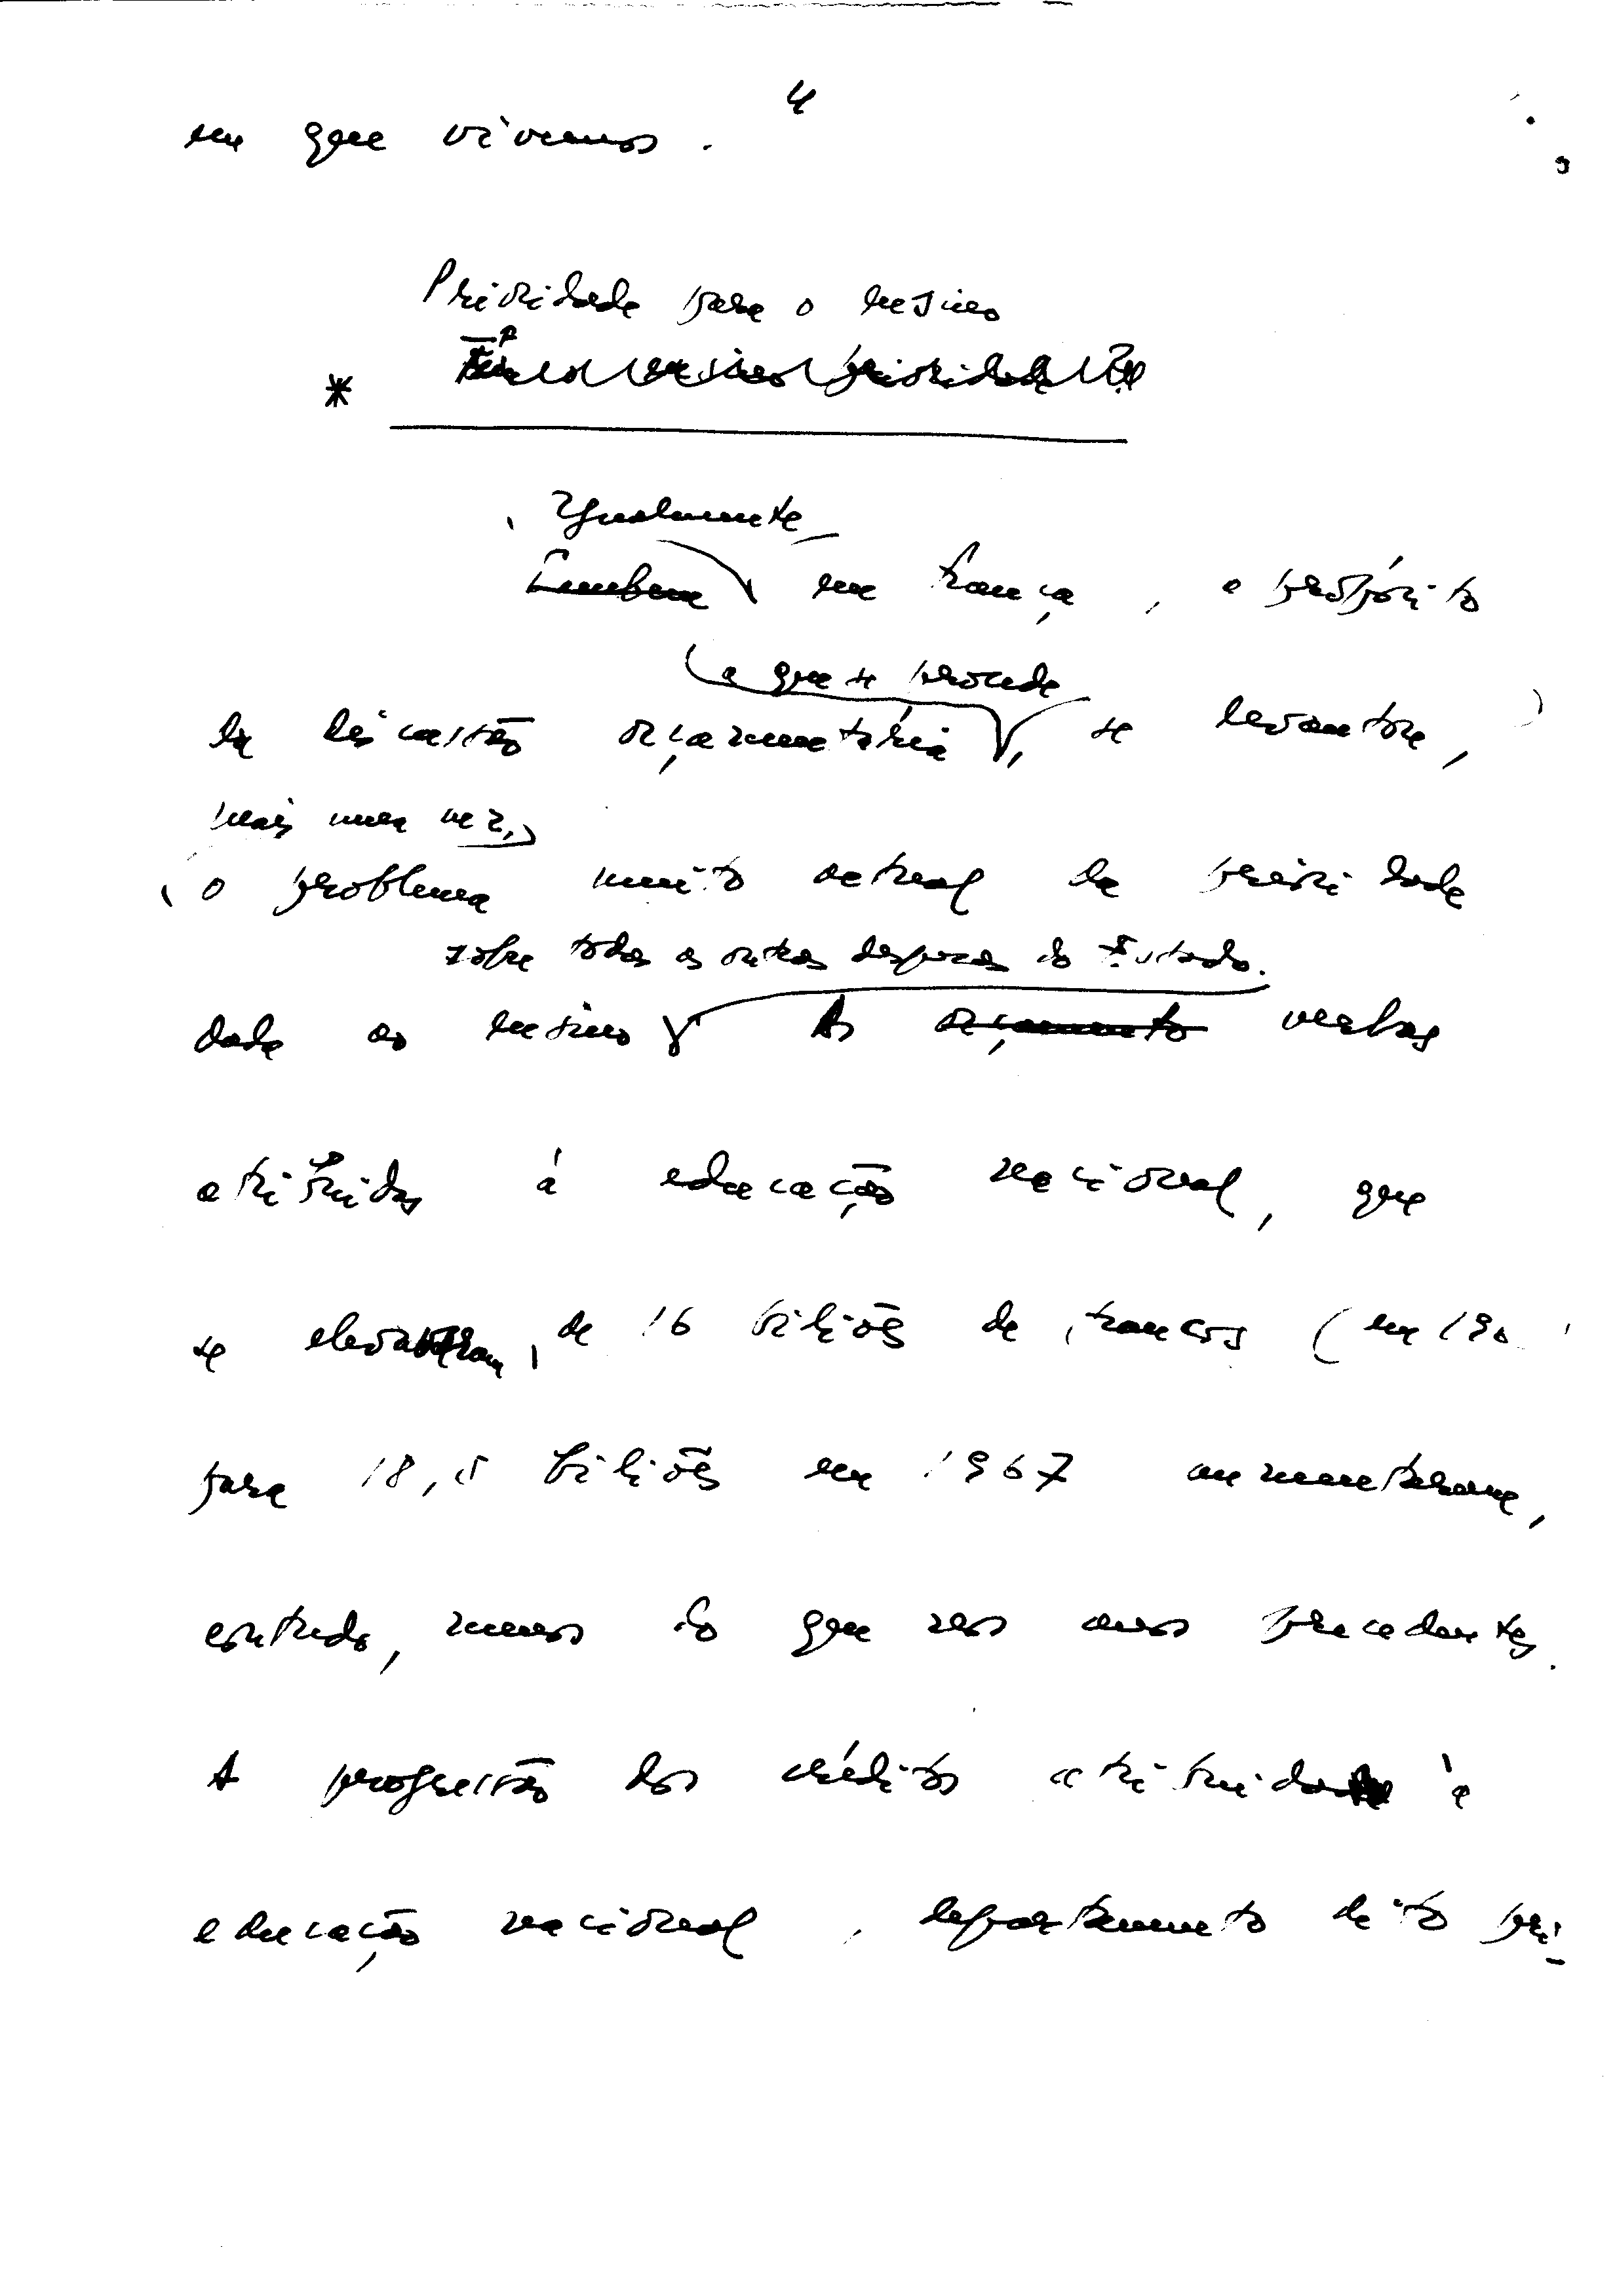 4
em que vivemos.
Prioridade para o ensino
* Tem o ensino prioridade?
Igualmente
Também em França, a propósito
a que se procede
da discussão orçamentária, se levantou,
mais uma vez,
o problema muito actual da priori dade
sobre todas as outras despesas do Estado.
dada ao ensino As orçamento verbas
atribuidas á educação nacional, que
se elevaram, de 16 biliões de francos (em 196
para 18,5 biliões em 1967 aumentaram,
contudo, menos do que nos anos precedentes.
A progressão dos créditos atribuidos à
educação nacional, departamento dito pri-